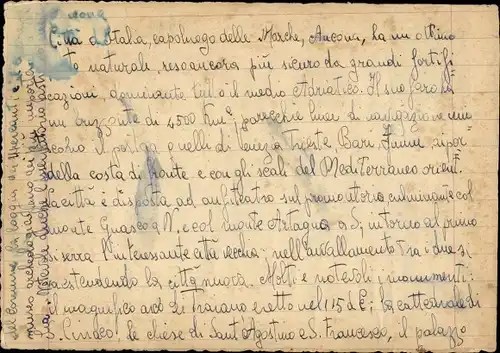 Città d'Italia, capoluogo delle Marche, Ancona, ha un ottimo
to naturale, reso ancora più sicuro da grandi fortifi
cazioni, dominante tutto il medio Adriatico. Il suo faro ha
un orizzonte di 4500 Km² parecchie linee di navigazione
il e quelli di Venezia Trieste Bari, Fiume, ai por
della costa di fronte e con gli scali del Mediterraneo orient.
La città è disposta ad anfiteatro sul promontorio, culminante col
monte Guasco a N. e col monte Astagno a S, intorno al primo
si serra l'interessante città vecchia; nell'avvallamento tra i due si
va estendendo la città nuova. Molti e notevoli i monumenti:
il magnifico arco di Traiano eretto nel 115 d. C; la cattedrale di
S. Ciriaco; le chiese di Sant'Agostino e S. Francesco, il palazzo
del Comune, la loggia dei Mercanti e
museo archeologico